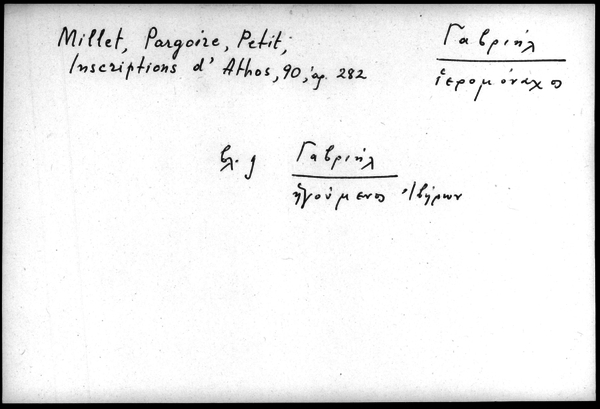 Millet, Pargoire, Petit,
Inscriptions d'Athos, 90, ἀρ. 282
Γαβριήλ
ἱερομόναχος
βλ.
Γαβριήλ
ἡγούμενος Ἰβήρων